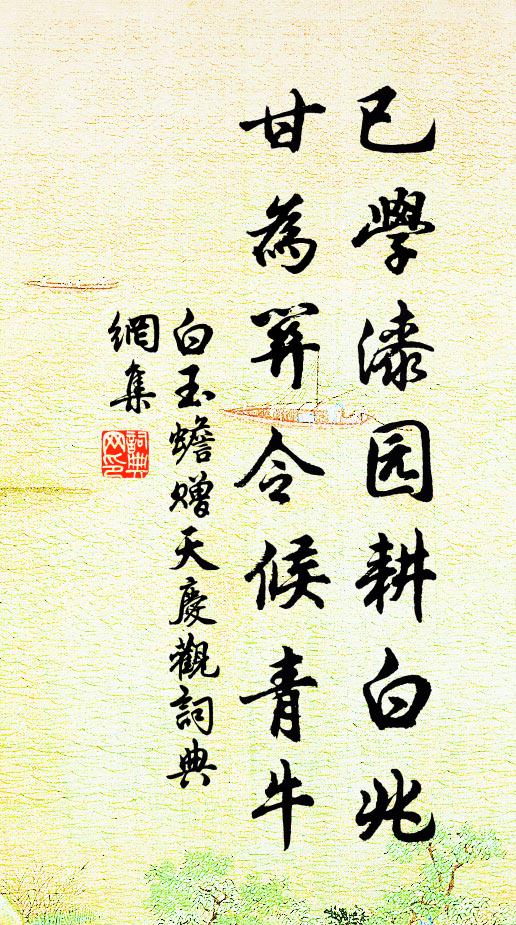 已學漆园耕白兆
甘為關令候青牛
白玉蟾贈天慶觀詞典
網集
詞典网印